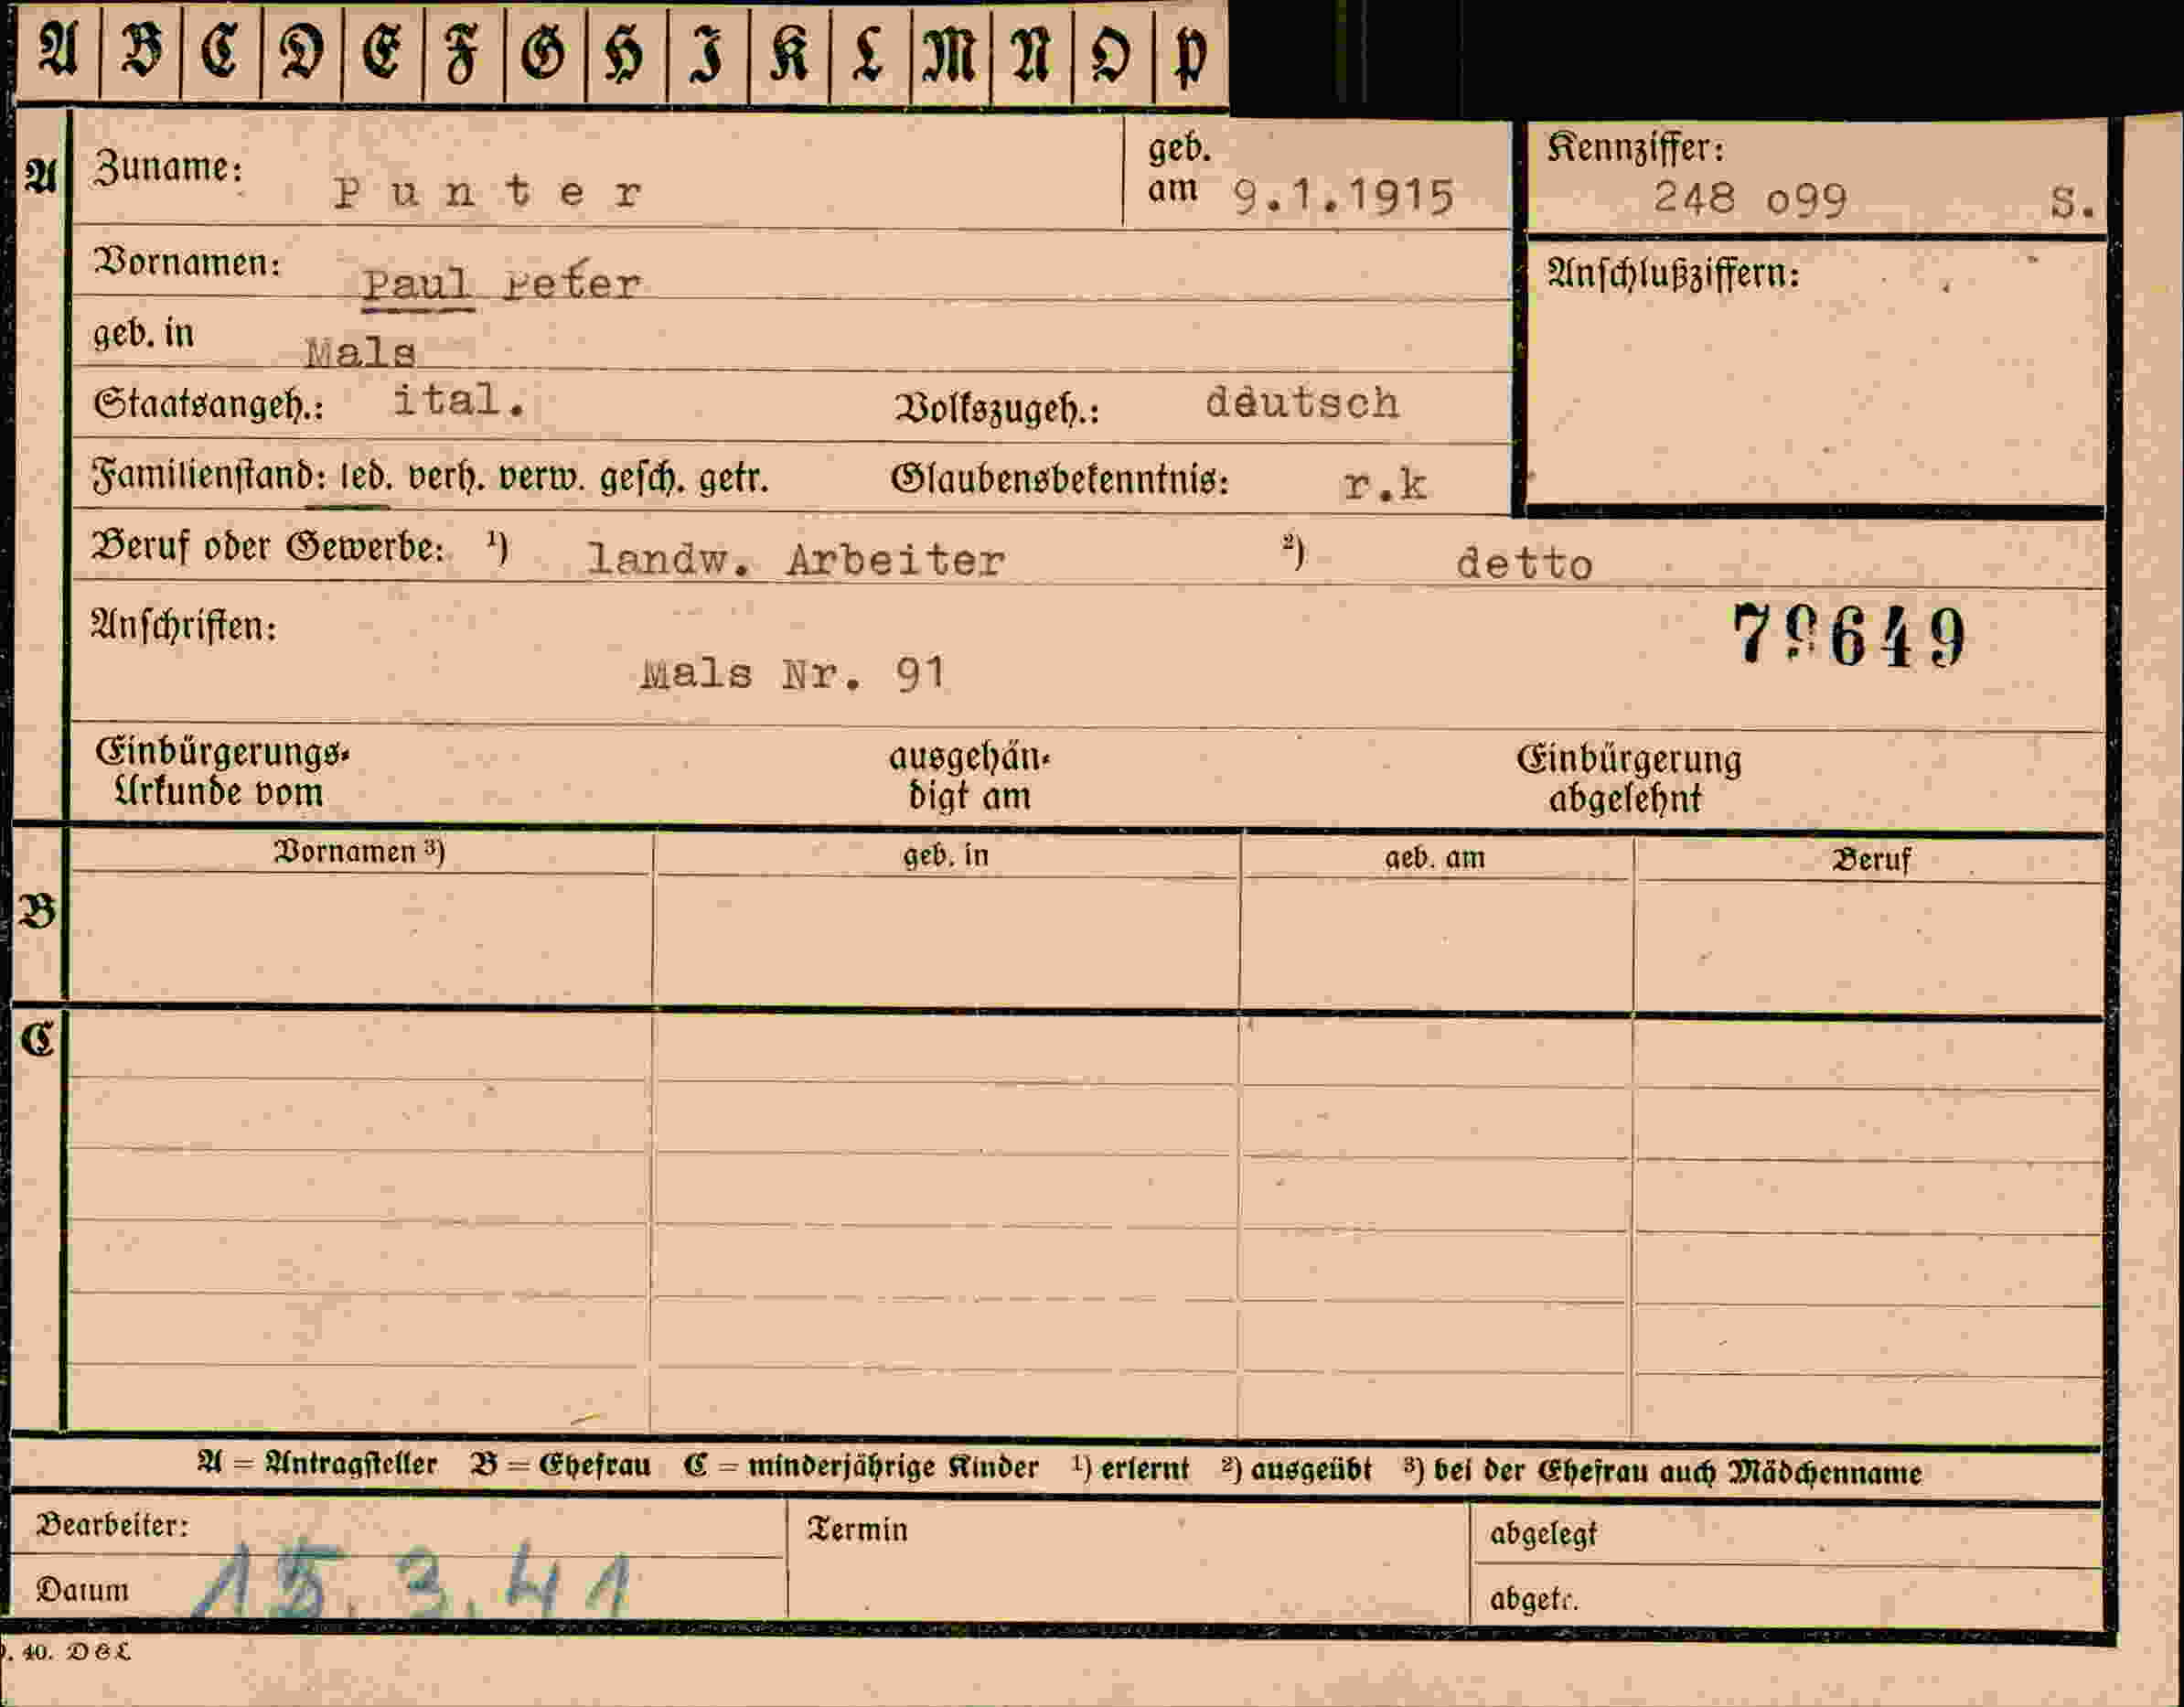 A B C D E F G H I K L M N O P
A Zuname: Punter geb. am 9.1.1915 Kennziffer: 248 o99 S.
Vornamen: Paul Peter Anschlußziffern:
geb. in Mals
Staatsangeh.: ital. Volkszugeh.: deutsch
Familienstand: led. verh. verw. gesch. getr. Glaubensbekenntnis: r.k
Beruf oder Gewerbe: ¹) landw. Arbeiter ²) detto
Anschriften:
Mals Nr. 91
Einbürgerungs- ausgehän- Einbürgerung
Urkunde vom digt am abgelehnt
Vornamen ³) geb. in geb. am Beruf
B
C
A = Antragsteller B = Ehefrau C = minderjährige Kinder ¹) erlernt ²) ausgeübt ³) bei der Ehefrau auch Mädchenname
Bearbeiter: Termin abgelegt
Datum 15.3.41 abgetr.
40. DEL